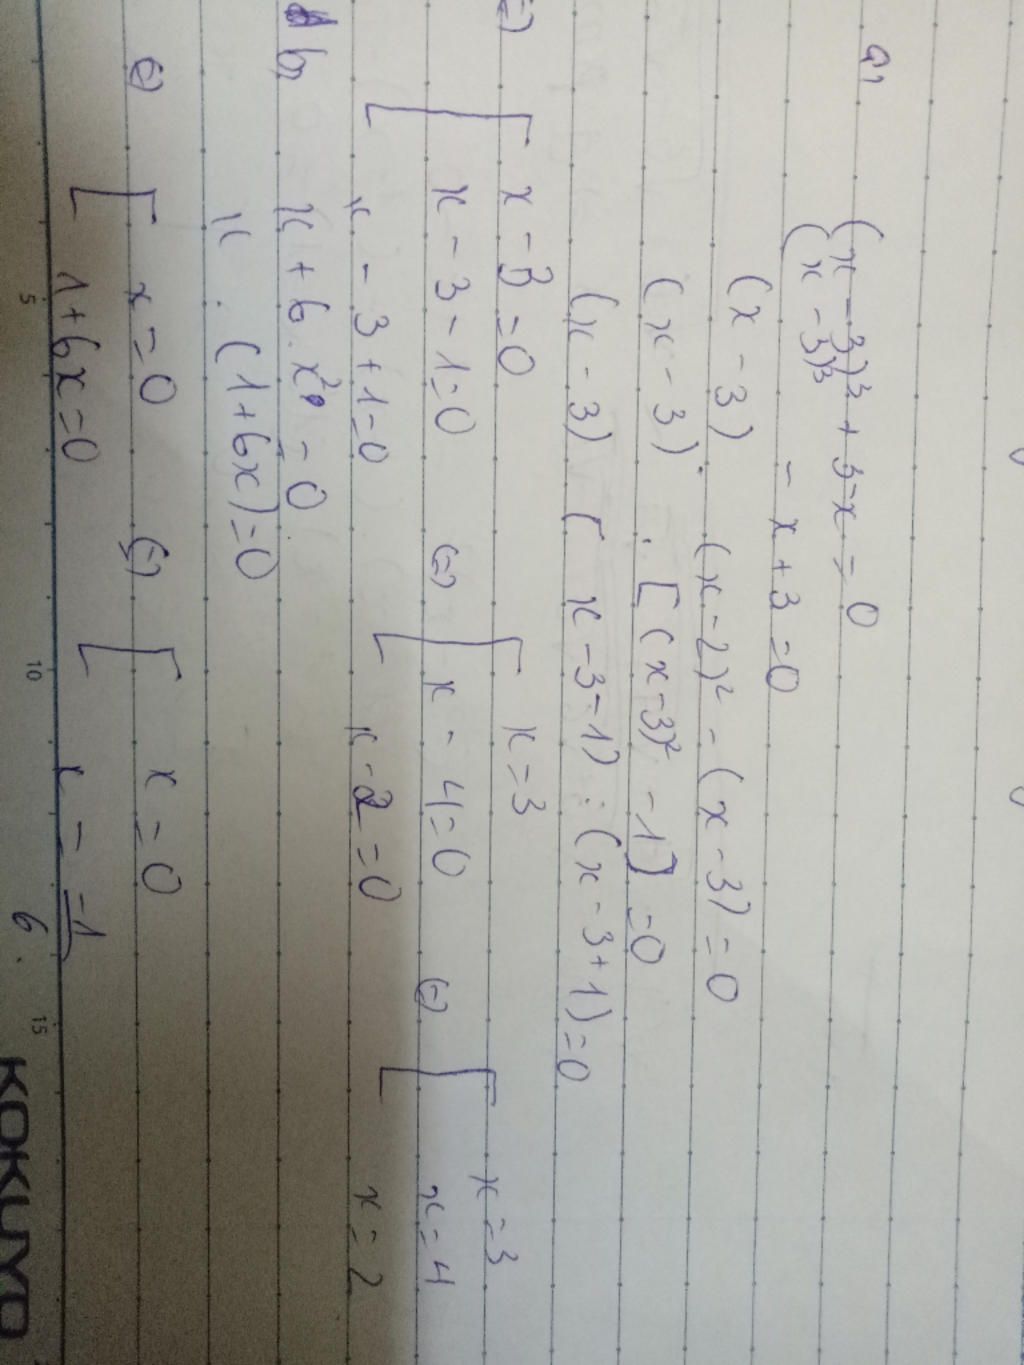 a,
(x - 3)³ + 3 - x = 0
(x - 3)³ - x + 3 = 0
(x - 3) . (x - 2)² - (x - 3) = 0
(x - 3) . [(x - 3)² - 1] = 0
(x - 3) ( x - 3 - 1) . (x - 3 + 1) = 0
=) [ x - 3 = 0
x - 3 - 1 = 0
x - 3 + 1 = 0
(=) [ x = 3
x - 4 = 0
x - 2 = 0
(=) [ x = 3
x = 4
x = 2
b, x + 6 . x² = 0
x . (1 + 6x) = 0
(=) [ x = 0
1 + 6x = 0
(=) [ x = 0
x = -1/6
5 10 15
KOKUYO